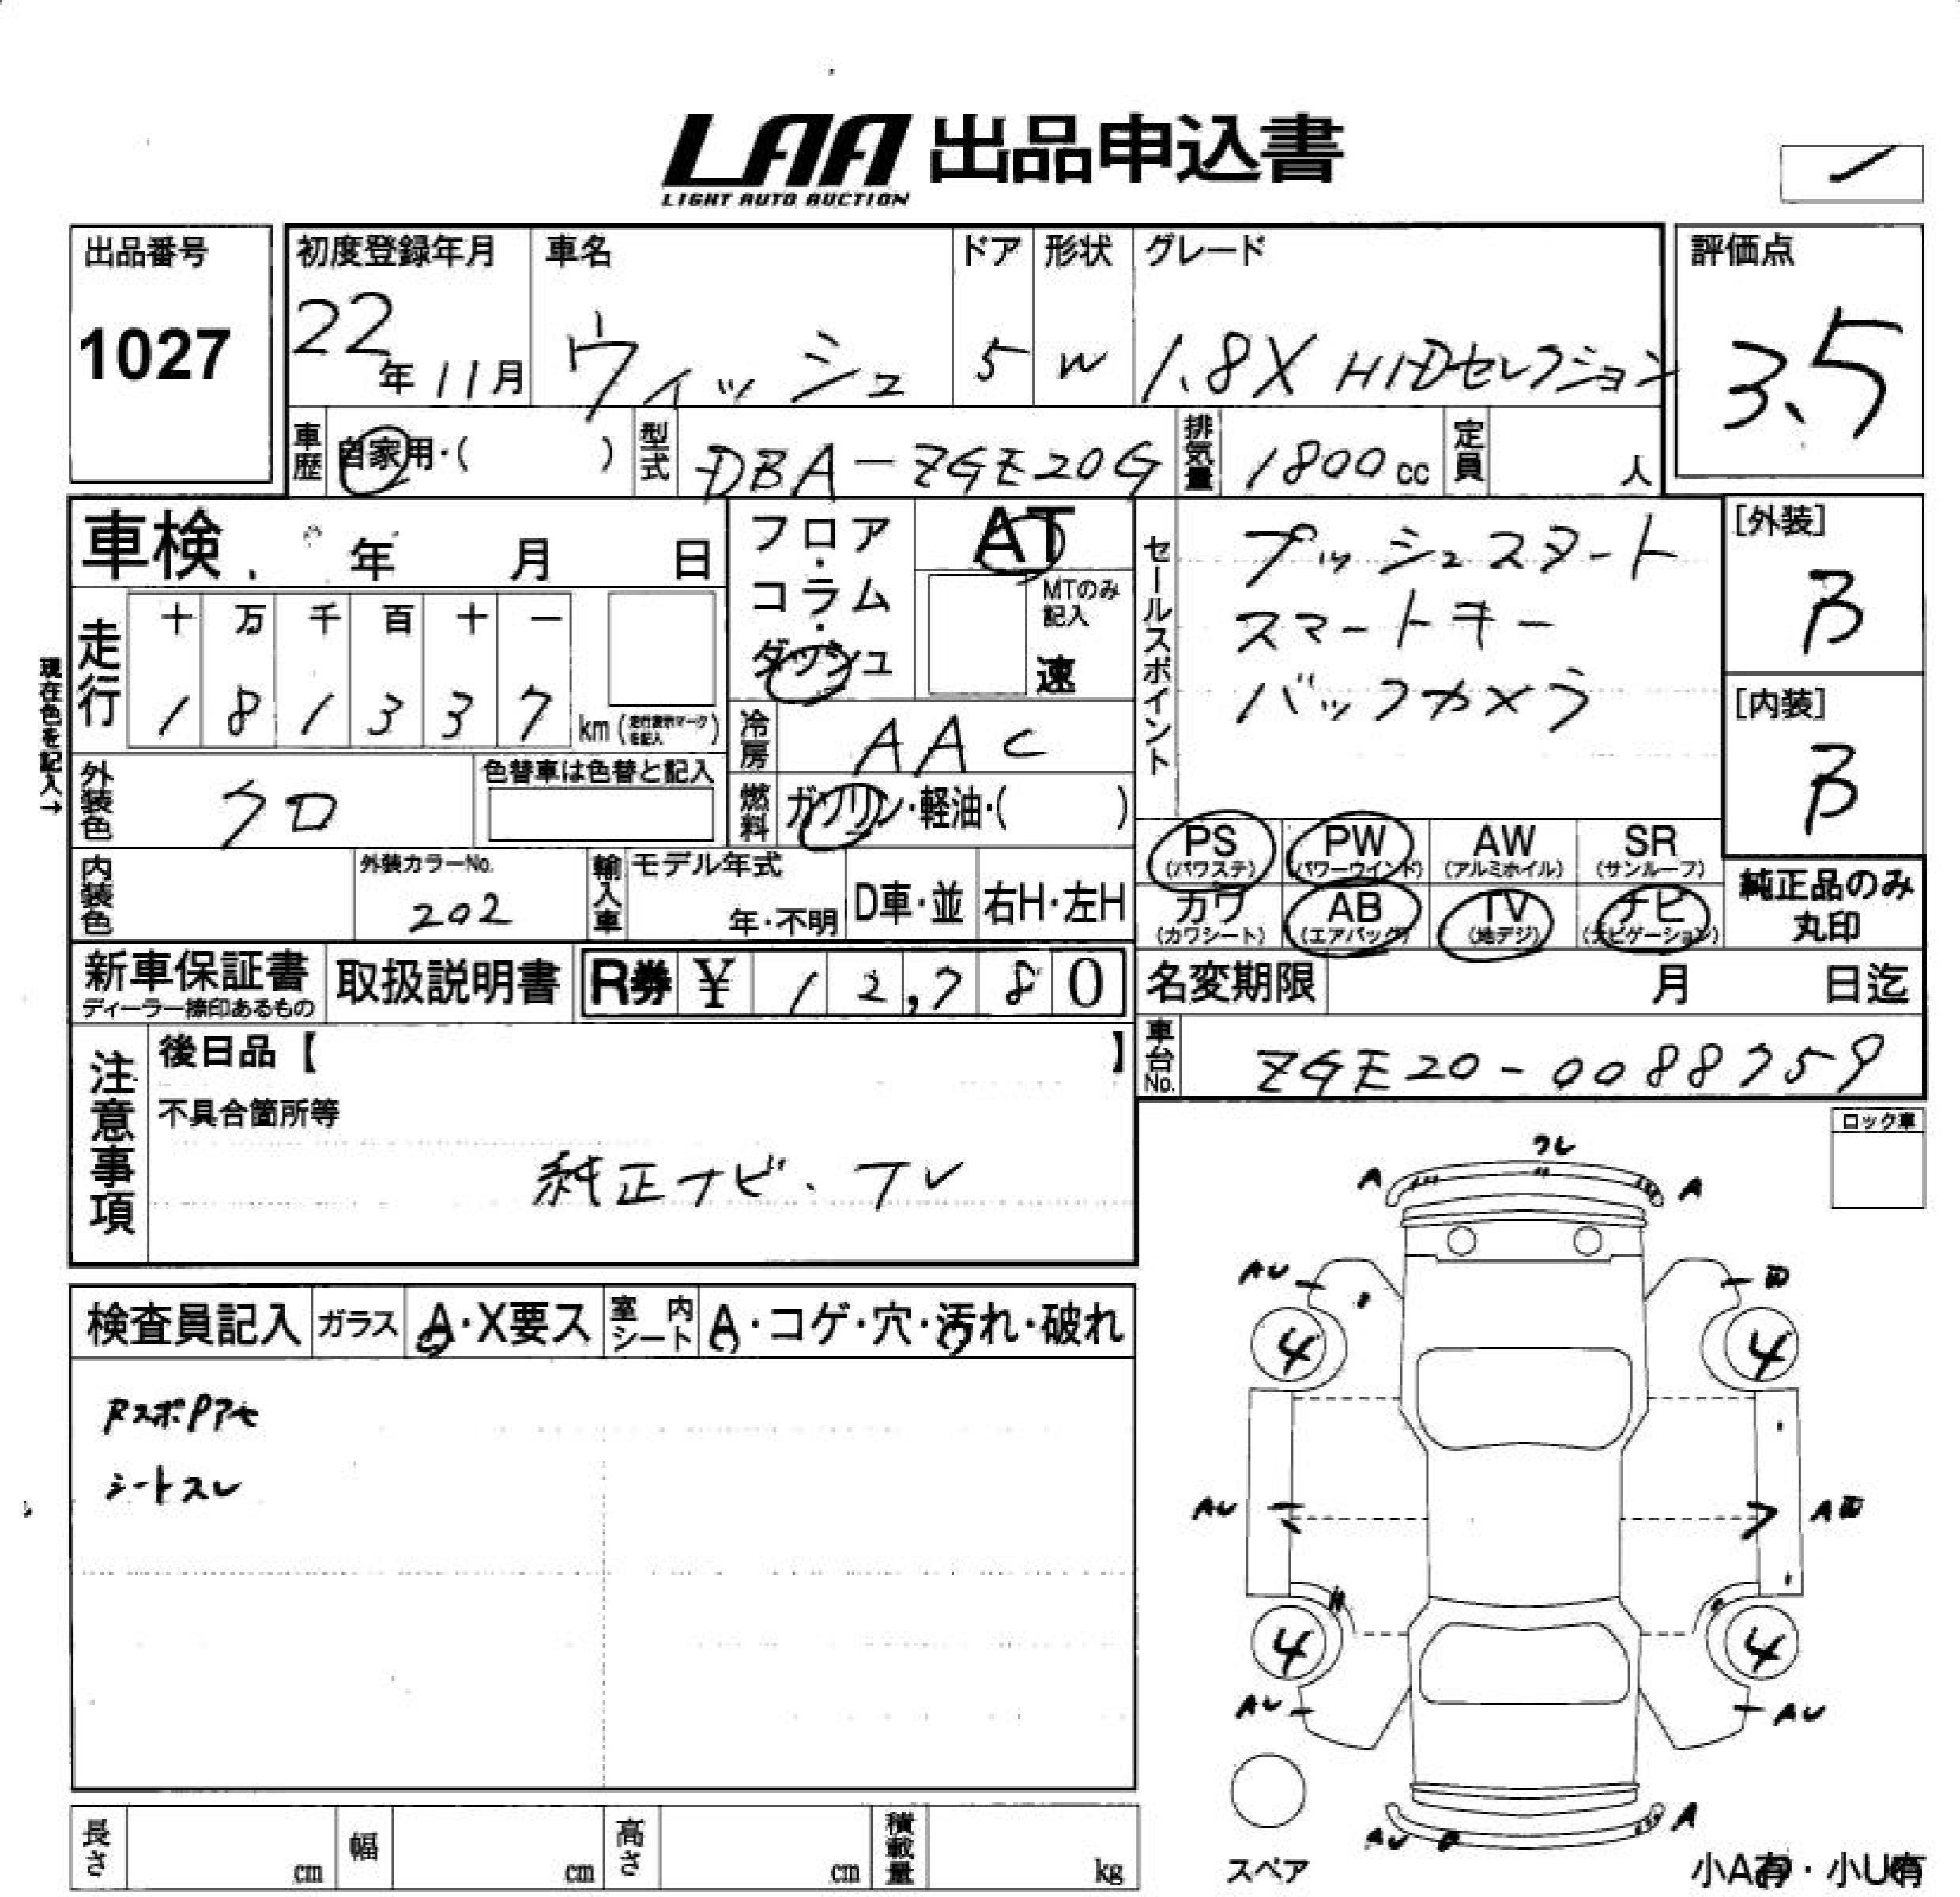 LAA 出品申込書
LIGHT AUTO AUCTION
出品番号
1027
初度登録年月
22年11月
車名
ウィッシュ
ドア
5
形状
W
グレード
1.8X HIDセレクション
評価点
3.5
車歴
自家用・( )
型式
DBA-ZGE20G
排気量
1800cc
定員
人
車検 年 月 日
フロア・コラム・ダッシュ
AT
MTのみ記入
速
セールスポイント
プッシュスタート
スマートキー
バックカメラ
[外装]
B
[内装]
B
現在色を記入→
走行
十 万 千 百 十 一
1 8 1 3 3 7 km (走行表示マークを記入)
冷房
AAC
外装色
クロ
色替車は色替と記入
燃料
ガソリン・軽油・( )
PS (パワステ)
PW (パワーウインド)
AW (アルミホイル)
SR (サンルーフ)
カワ (カワシート)
AB (エアバック)
TV (地デジ)
ナビ (ナビゲーション)
純正品のみ
丸印
内装色
外装カラーNo.
202
輸入車
モデル年式
年・不明
D車・並
右H・左H
新車保証書
ディーラー捺印あるもの
取扱説明書
R券 ¥ 1 2,7 8 0
名変期限 月 日迄
車台No.
ZGE20-0088759
注意事項
後日品【 】
不具合箇所等
純正ナビ・TV
ロック車
検査員記入
ガラス
A・X要ス
室内シート
A・コゲ・穴・汚れ・破れ
シートスレ
A
A
AU
4
4
AU
4
4
AU
AU
AU
A
スペア
小A有・小U有
長さ cm
幅 cm
高さ cm
積載量 kg